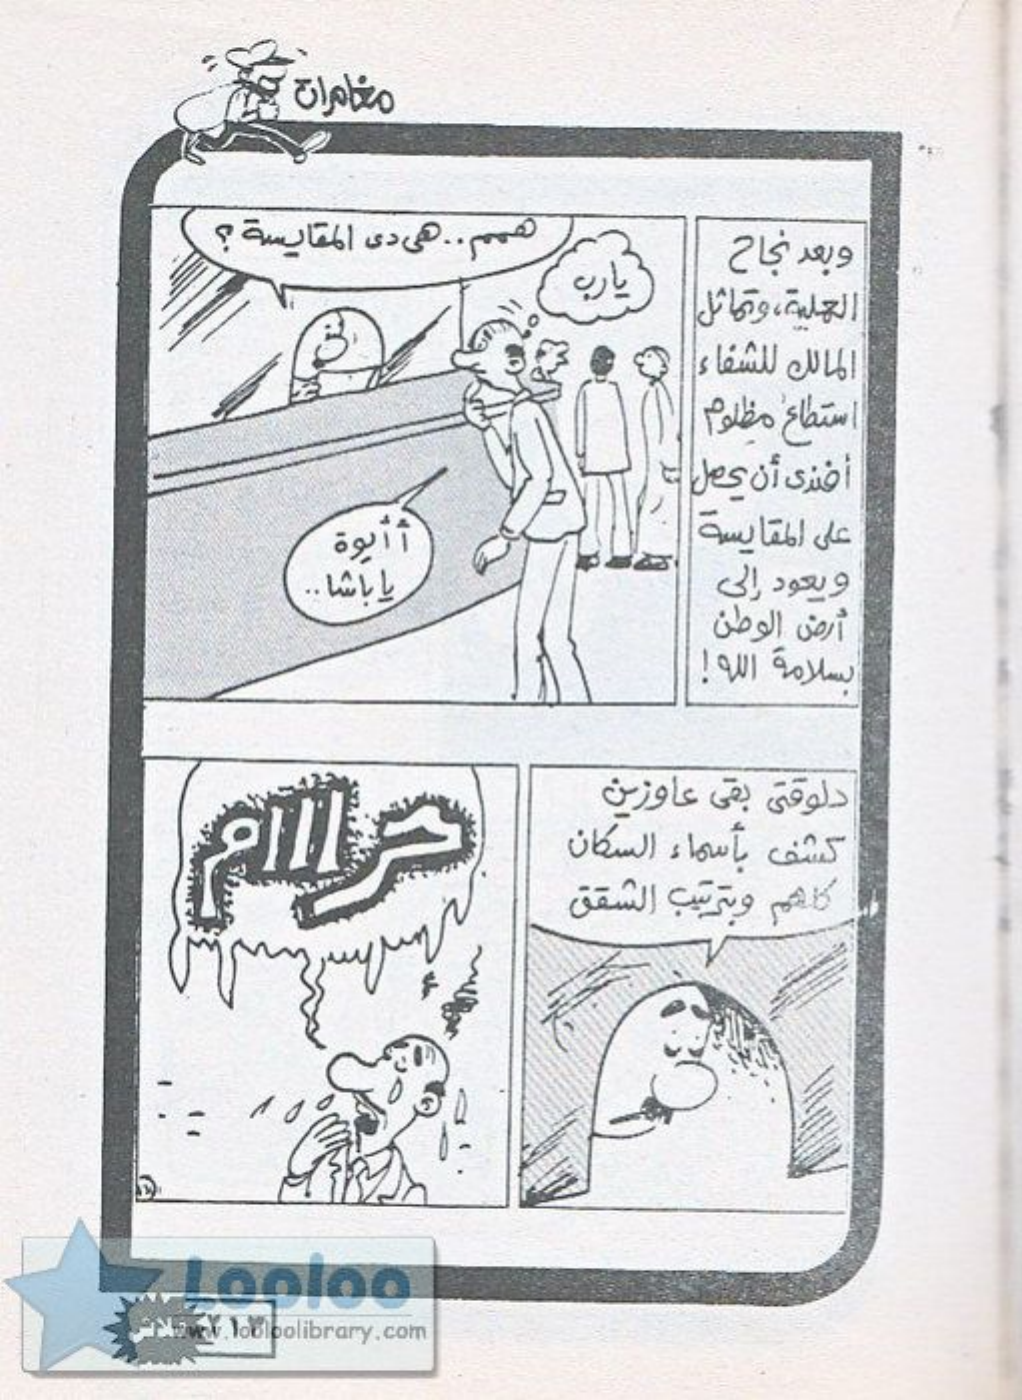 مغامرات
وبعد نجاح
العملية، وتماثل
المالك للشفاء
استطاع مظلوم
أفندى أن يحصل
على المقايسة
ويعود إلى
أرض الوطن
بسلامة الله!
همم.. هى دى المقايسة ؟
يارب
أ أ أيوة
يا باشا..
دلوقتى بقى عاوزين
كشف بأسماء السكان
كلهم وبترتيب الشقق
حرااام
Looloo
www.looloolibrary.com
فلاش
٢١٣